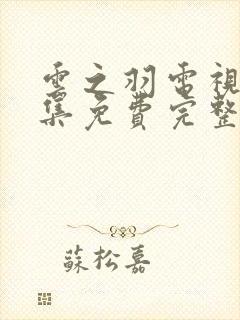 雲之羽電視
集免費完整
蘇松嘉